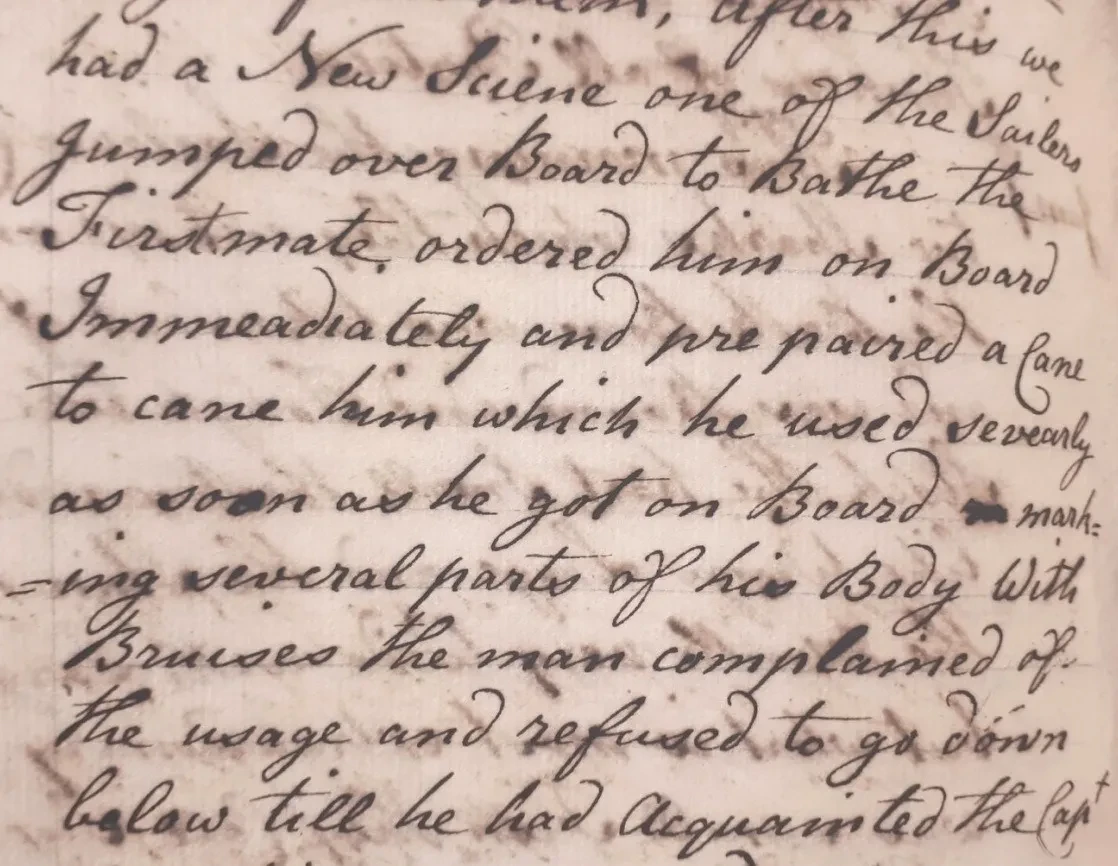 them, after this we
had a New Sciene one of the Sailers
Jumped over Board to Bathe the
Firstmate ordered him on Board
Immeadiately and pre paired a Cane
to cane him which he used sevearly
as soon as he got on Board mark=
=ing several parts of his Body With
Bruises the man complained of
the usage and refused to go down
below till he had Acquainted the Capt